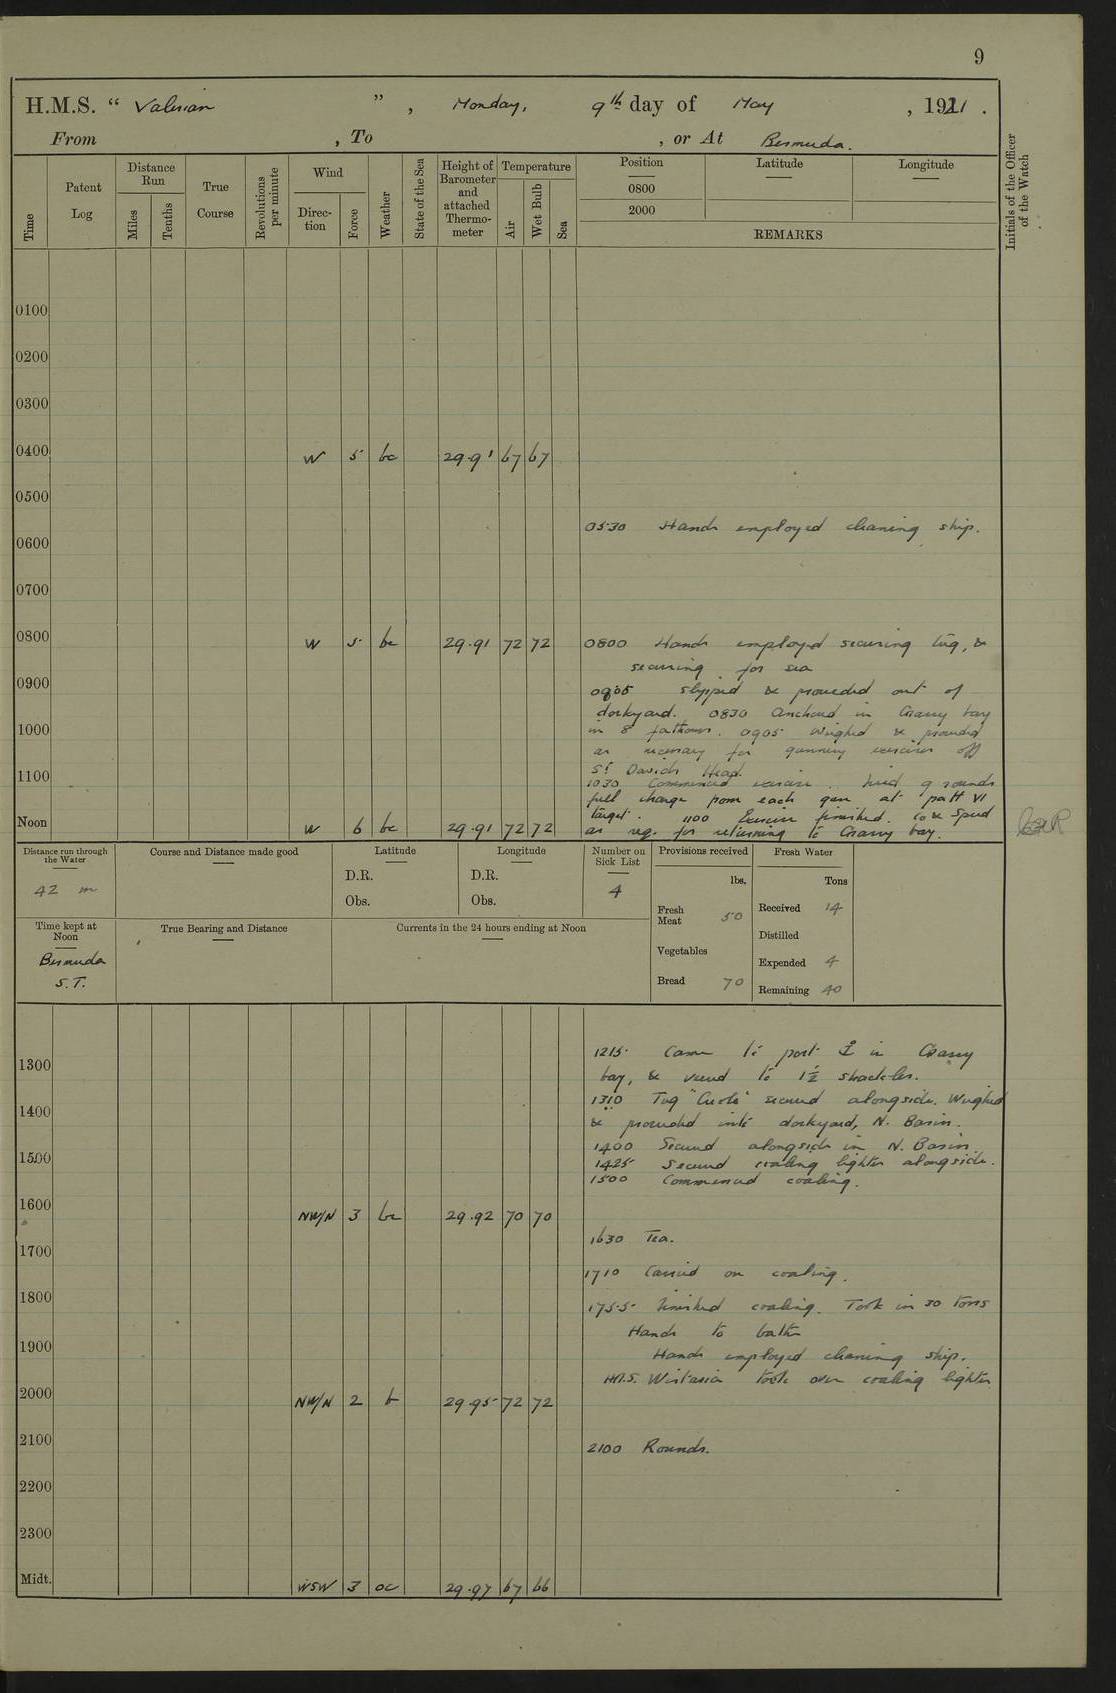 9
H.M.S. “ Valerian ” , Monday, 9th day of May , 1921 .
From , To , or At Bermuda.
Time
Patent Log
Distance Run
Miles
Tenths
True Course
Revolutions per minute
Wind
Direc-tion
Force
Weather
State of the Sea
Height of Barometer and attached Thermo-meter
Temperature
Air
Wet Bulb
Sea
Position Latitude Longitude
0800
2000
REMARKS
Initials of the Officer of the Watch
0100
0200
0300
0400 W 5 bc 29.91 67 67
0500
0530 Hands employed cleaning ship.
0600
0700
0800 W 5 bc 29.91 72 72 0800 Hands employed securing tug, &
securing for sea
0900
slipped & proceeded out of
dockyard. 0830 Anchored in Grassy bay
1000
in 8 fathoms. 0905 Weighed & proceeded
as necessary for gunnery exercises off
1100
St Davids Head.
1030 Commenced exercise. fired 9 rounds
full charge from each gun at patt VI
target. 1100 Exercise finished. Co & Speed
Noon W 6 bc 29.91 72 72 as req. for returning to Grassy bay.
Distance run through the Water
42 m
Course and Distance made good
Latitude
D.R.
Obs.
Longitude
D.R.
Obs.
Number on Sick List
4
Provisions received
lbs.
Fresh Meat 50
Vegetables
Bread 70
Fresh Water
Tons
Received 14
Distilled
Expended 4
Remaining 40
Time kept at Noon
Bermuda
S.T.
True Bearing and Distance
Currents in the 24 hours ending at Noon
1215 Came to port ⚓ in Grassy
1300
bay, & veered to 1½ shackles.
1310 Tug "Creole" secured alongside. Weighed
1400
& proceeded into dockyard, N. Basin.
1400 Secured alongside in N. Basin
1500
1425 Secured coaling lighter alongside.
1500 Commenced coaling.
1600 NW/N 3 bc 29.92 70 70
1630 Tea.
1700
1710 Carried on coaling.
1800
1755 finished coaling. Took in 30 tons
Hands to bathe
1900
Hands employed cleaning ship.
H.M.S. Wistaria took over coaling lighter
2000 NW/N 2 b 29.95 72 72
2100
2100 Rounds.
2200
2300
Midt. WSW 3 oc 29.97 67 66